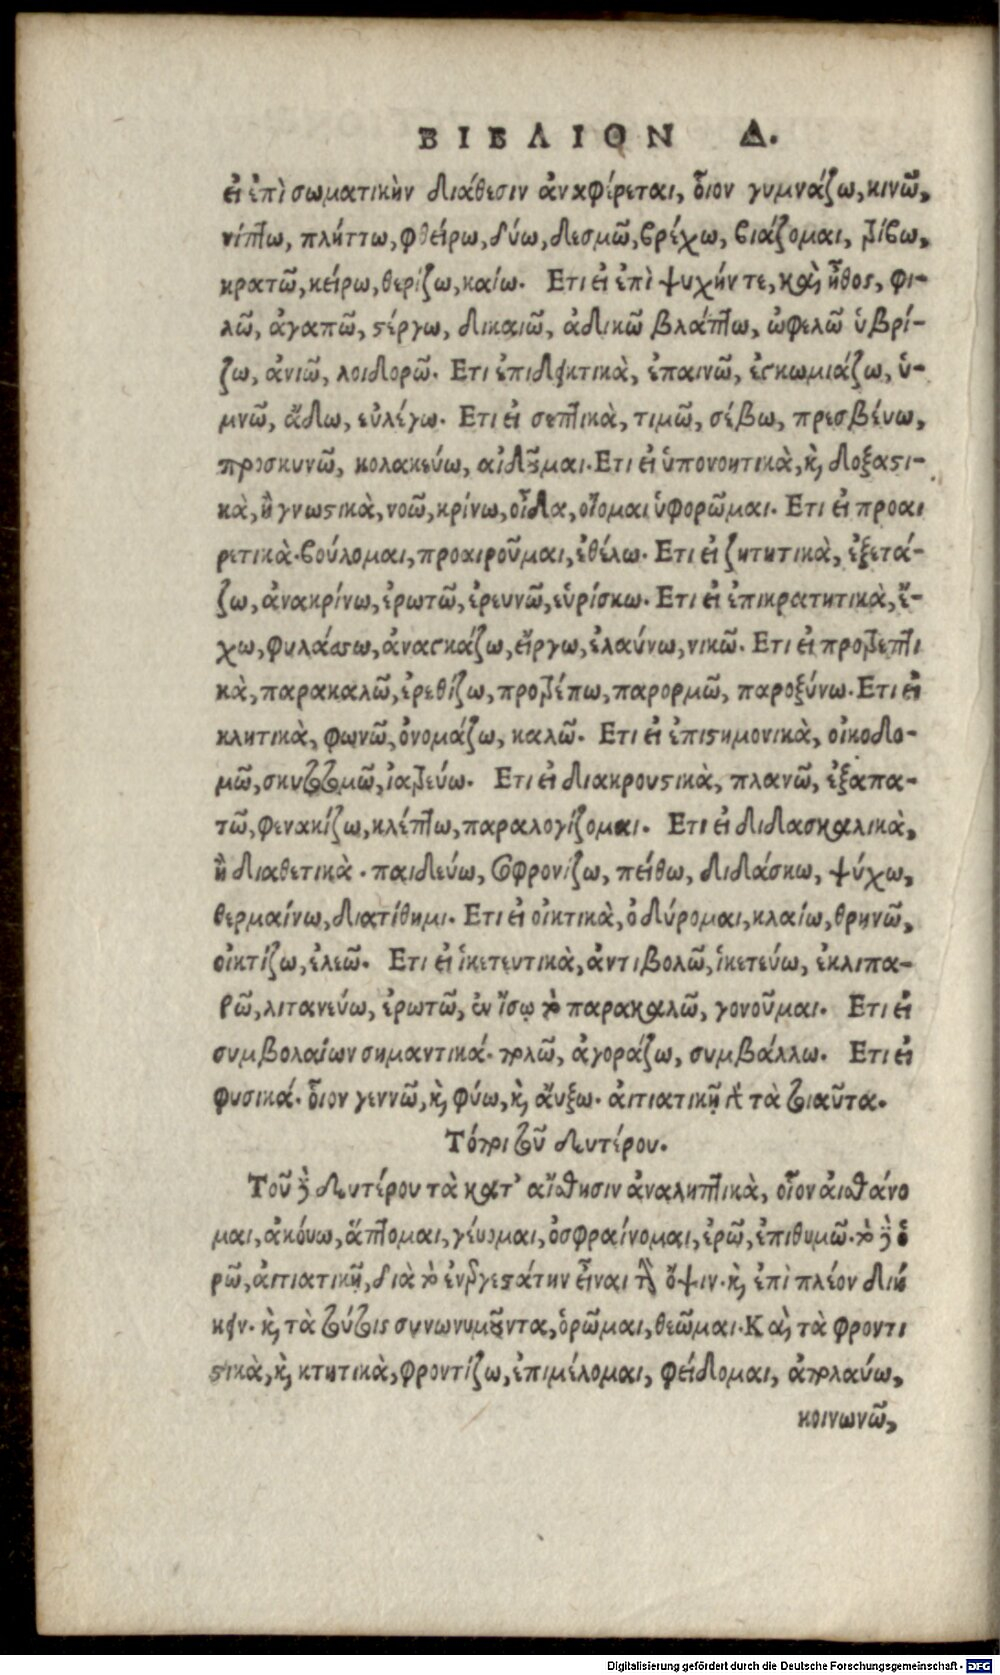 ΒΙΒΛΙΟΝ Δ.
εἰ ἐπὶ σωματικὴν διάθεσιν ἀναφέρεται, οἷον γυμνάζω, κινῶ,
νίπτω, πλήττω, φθείρω, δύω, δεσμῶ, βρέχω, βιάζομαι, τρίβω,
κρατῶ, κείρω, θερίζω, καίω. Ετι εἰ ἐπὶ ψυχήν τε, καὶ ἦθος, φι-
λῶ, ἀγαπῶ, στέργω, δικαιῶ, ἀδικῶ βλάπτω, ὠφελῶ ὑβρί-
ζω, ἀνιῶ, λοιδορῶ. Ετι ἐπιδεικτικὰ, ἐπαινῶ, ἐγκωμιάζω, ὑ-
μνῶ, ᾄδω, εὐλέγω. Ετι εἰ σεπτικὰ, τιμῶ, σέβω, πρεσβέυω,
προσκυνῶ, κολακεύω, αἰδοῦμαι. Ετι εἰ ὑπονοητικὰ, καὶ δοξαστι-
κὰ, ἢ γνωστικὰ, νοῶ, κρίνω, οἶδα, οἴομαι ὑφορῶμαι. Ετι εἰ προαι
ρετικὰ. βούλομαι, προαιροῦμαι, ἐθέλω. Ετι εἰ ζητητικὰ, ἐξετά-
ζω, ἀνακρίνω, ἐρωτῶ, ἐρευνῶ, εὑρίσκω. Ετι εἰ ἐπικρατητικὰ, ἔ-
χω, φυλάσσω, ἀναγκάζω, εἴργω, ἐλαύνω, νικῶ. Ετι εἰ προτρεπτι
κὰ, παρακαλῶ, ἐρεθίζω, προτρέπω, παρορμῶ, παροξύνω. Ετι εἰ
κλητικὰ, φωνῶ, ὀνομάζω, καλῶ. Ετι εἰ ἐπιστημονικὰ, οἰκοδο-
μῶ, σκυτοτομῶ, ἰατρεύω. Ετι εἰ διακρουστικὰ, πλανῶ, ἐξαπα-
τῶ, φενακίζω, κλέπτω, παραλογίζομαι. Ετι εἰ διδασκαλικὰ,
ἢ διαθετικὰ. παιδεύω, σωφρονίζω, πείθω, διδάσκω, ψύχω,
θερμαίνω, διατίθημι. Ετι εἰ οἰκτικὰ, ὀδύρομαι, κλαίω, θρηνῶ,
οἰκτίζω, ἐλεῶ. Ετι εἰ ἱκετευτικὰ, ἀντιβολῶ, ἱκετεύω, ἐκλιπα-
ρῶ, λιτανεύω, ἐρωτῶ, ἐν ἴσῳ τὸ παρακαλῶ, γονοῦμαι. Ετι εἰ
συμβολαίων σημαντικά. πωλῶ, ἀγοράζω, συμβάλλω. Ετι εἰ
φυσικά. οἷον γεννῶ, καὶ φύω, καὶ ἄυξω. ἀιτιατικῇ τὰ τοιαῦτα.
Τόποι τοῦ δευτέρου.
Τοῦ δὲ δευτέρου τὰ κατ' αἴσθησιν ἀναληπτικὰ, οἷον ἀισθάνο
μαι, ἀκόυω, ἅπτομαι, γέυομαι, ὀσφραίνομαι, ἐρῶ, ἐπιθυμῶ. τὸ δὲ ὁ
ρῶ, ἀιτιατικῇ, διὰ τὸ ἐνεργεστάτην εἶναι τὴν ὄψιν. καὶ ἐπὶ πλέον διή
κειν. καὶ τὰ τούτοις συνωνυμοῦντα, ὁρῶμαι, θεῶμαι. Καὶ τὰ φροντι
στικὰ, καὶ κτητικὰ, φροντίζω, ἐπιμέλομαι, φείδομαι, ἀπολαύω,
κοινωνῶ,
Digitalisierung gefördert durch die Deutsche Forschungsgemeinschaft - DFG